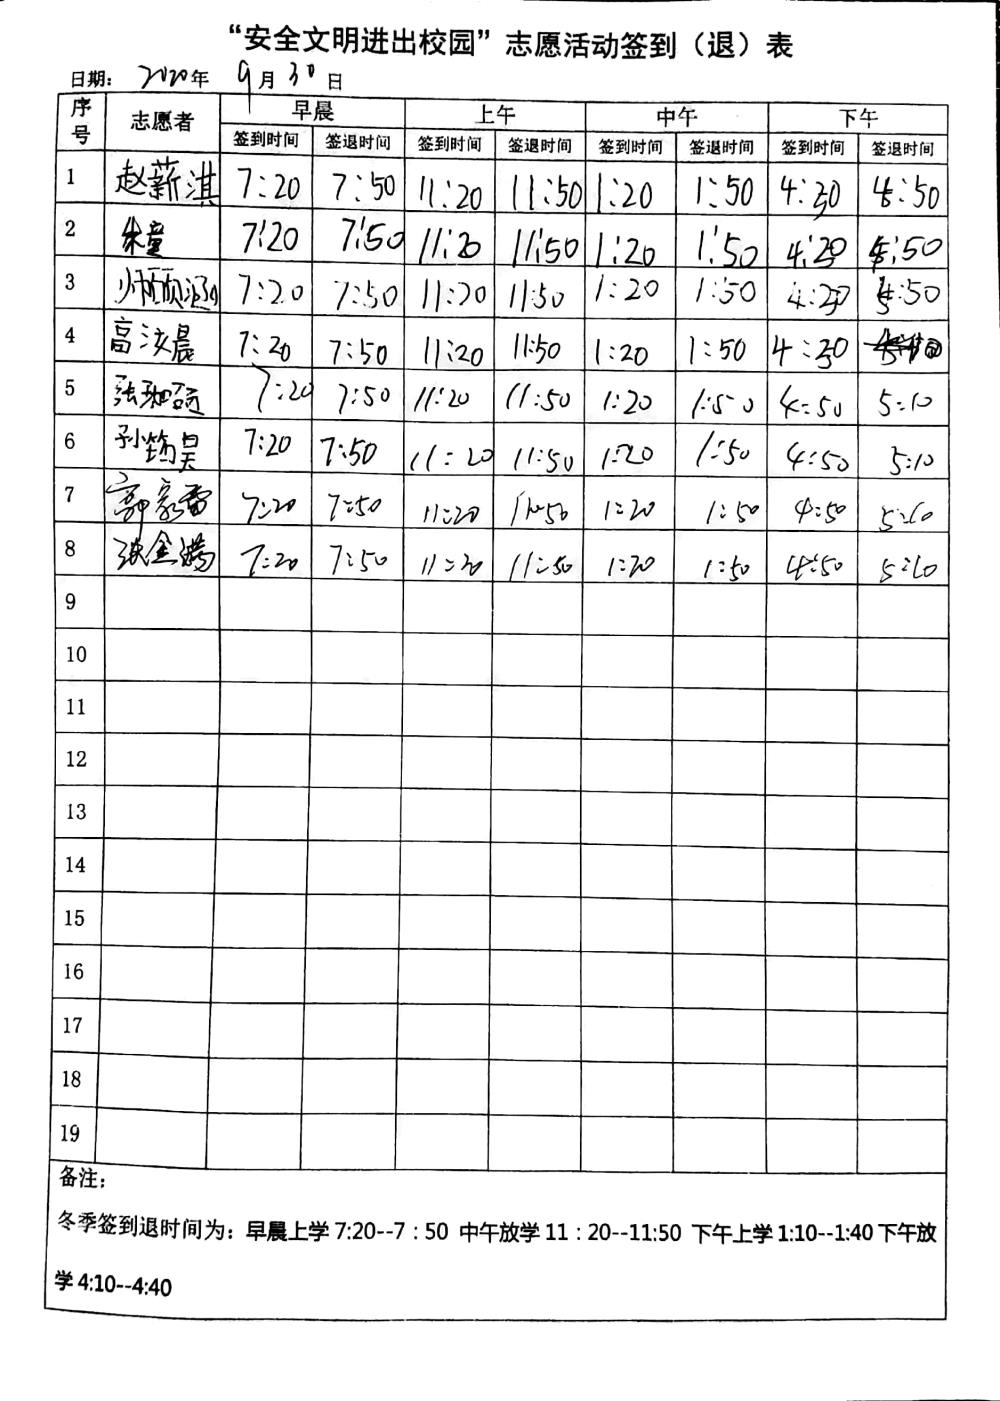 “安全文明进出校园”志愿活动签到（退）表
日期： 2020年 9月30日
序号 志愿者 早晨 上午 中午 下午
签到时间 签退时间 签到时间 签退时间 签到时间 签退时间 签到时间 签退时间
1 赵薪淇 7:20 7:50 11:20 11:50 1:20 1:50 4:30 :50
2 朱童 7:20 7:50 11:20 11:50 1:20 1:50 4:20 :50
3 7:20 7:50 11:20 11:50 1:20 1:50 4:20 :50
4 高汶晨 7:20 7:50 11:20 11:50 1:20 1:50 4:30
5 7:20 7:50 11:20 11:50 1:20 1:50 4:50 5:10
6 孙筠昊 7:20 7:50 11:20 11:50 1:20 1:50 4:50 5:10
7 郭家雷 7:20 7:50 11:20 11:50 1:20 1:50 4:50 5:10
8 张金满 7:20 7:50 11:20 11:50 1:20 1:50 4:50 5:10
9
10
11
12
13
14
15
16
17
18
19
备注：
冬季签到退时间为：早晨上学 7:20--7：50 中午放学 11：20--11:50 下午上学 1:10--1:40 下午放
学 4:10--4:40